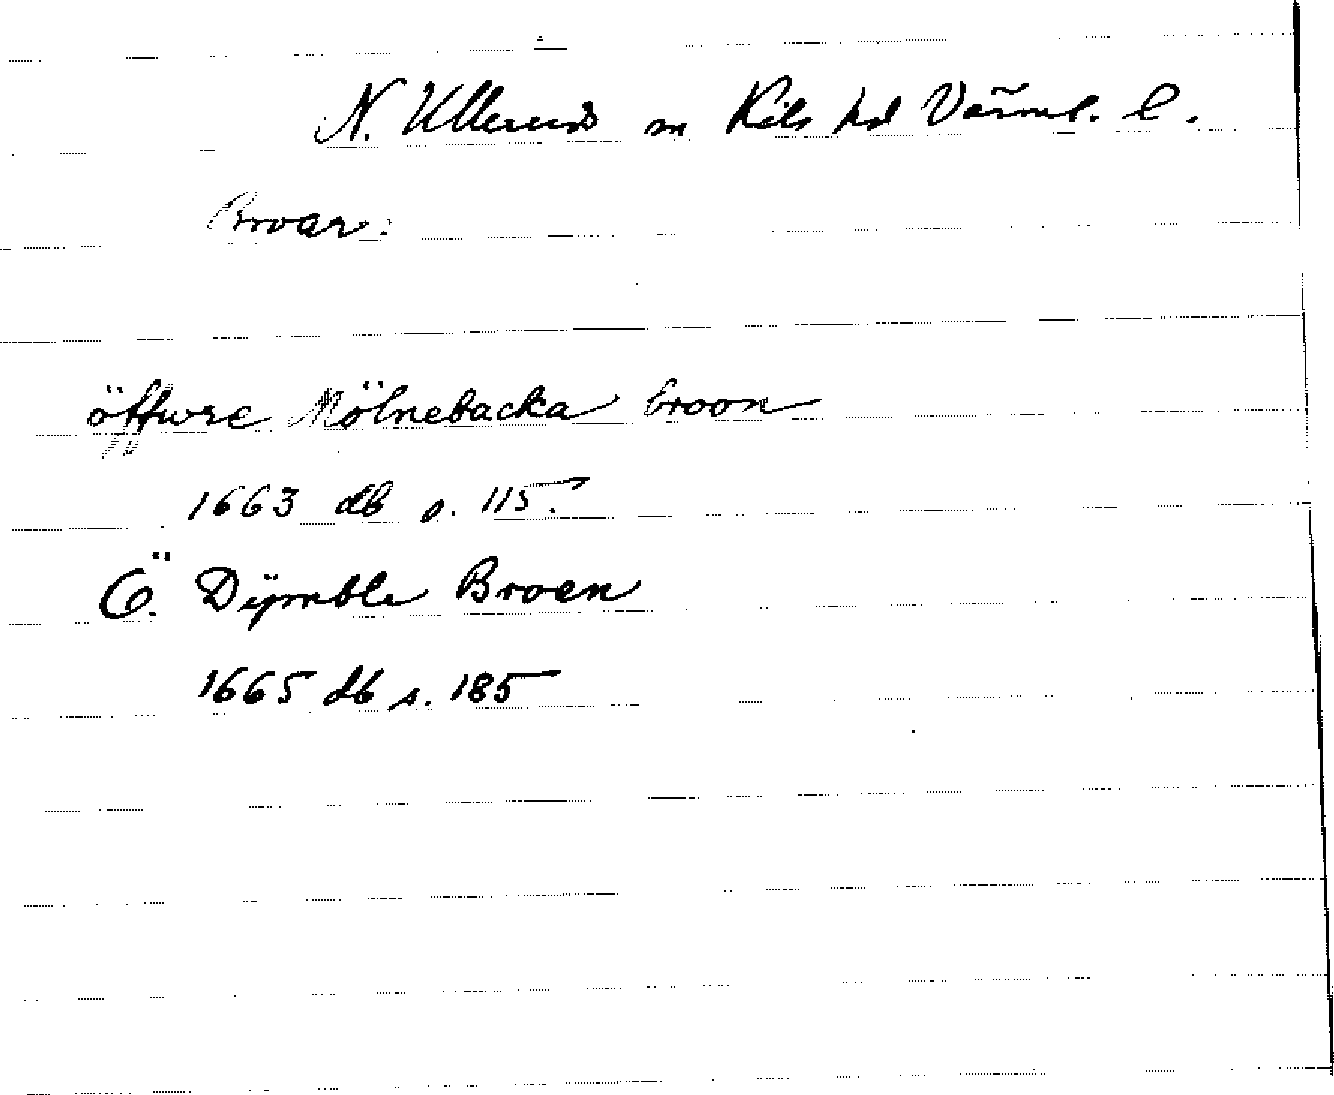 N. Ullerud sn Kils hd Värml. l.
Broar:
öffwre Mölnebacka broon
1663 db s. 115.
Ö. Dÿmble Broen
1665 db s. 185